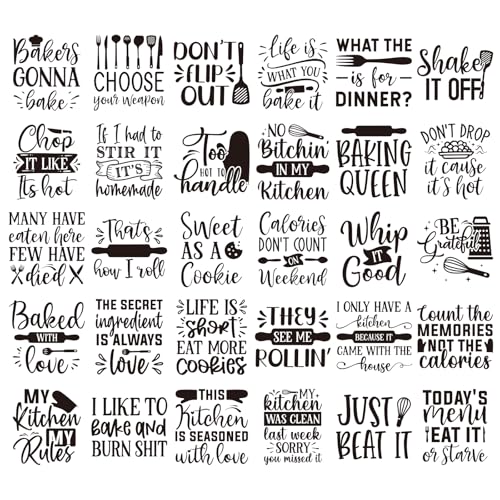 Bakers
GONNA
bake
CHOOSE
your weapon
DON'T
FLIP
OUT
Life is
WHAT YOU
bake it
WHAT THE
is for
DINNER?
Shake
IT OFF
Chop
IT LIKE
Its hot
If I had to
STIR IT
IT'S
homemade
Too
HOT TO
handle
NO
Bitchin'
IN MY
Kitchen
BAKING
QUEEN
DON'T DROP
it cause
it's hot
MANY HAVE
eaten here
FEW HAVE
died
That's
how I roll
Sweet
AS A
Cookie
Calories
DON'T COUNT
ON
Weekend
Whip
IT
Good
BE
Grateful
Baked
WITH
love
THE SECRET
ingredient
IS ALWAYS
love
LIFE IS
short
EAT MORE
cookies
THEY
SEE ME
ROLLIN'
I ONLY HAVE A
kitchen
BECAUSE IT
CAME WITH THE
house
Count the
MEMORIES
NOT THE
calories
MY
Kitchen
MY
Rules
I LIKE TO
bake and
BURN SHIT
THIS
Kitchen
IS SEASONED
with love
MY
kitchen
WAS CLEAN
last week
SORRY
you missed it
JUST
BEAT IT
TODAY'S
menu
EAT IT
or starve